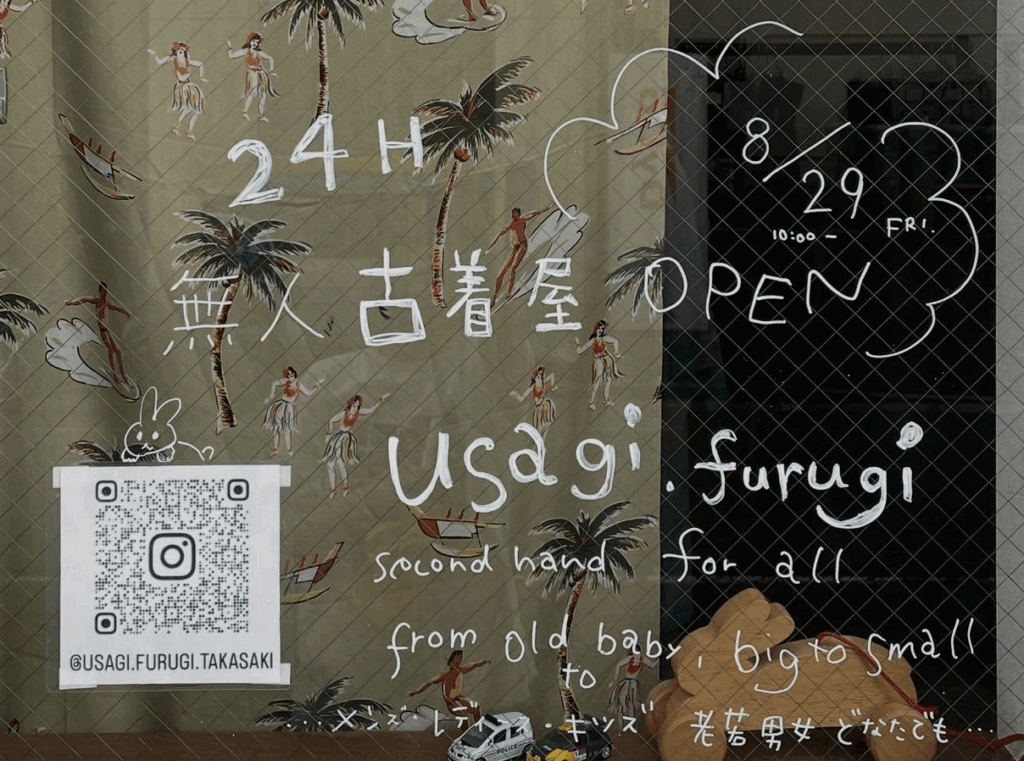 8/29
10:00- FRI.
24H
無人古着屋 OPEN
usagi.furugi
second hand for all
from old to baby, big to small
@USAGI.FURUGI.TAKASAKI
...メンズ・レディース・キッズ 老若男女どなたでも...
POLICE